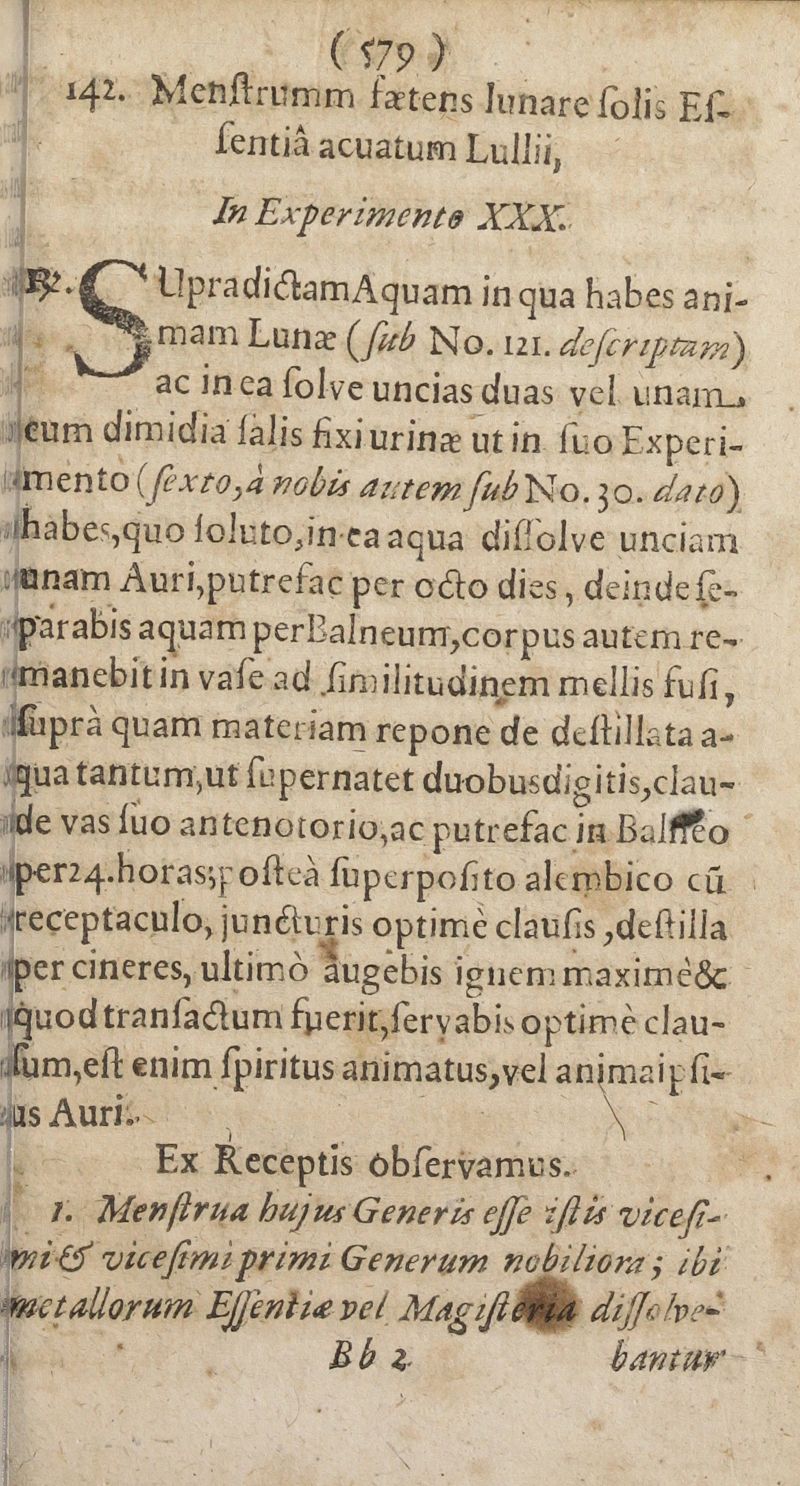 ( 579 )
142. Menſtrumm fætens lunare ſolis Eſ-
ſentiâ acuatum Lullii,
In Experimento XXX.
℞. SUpradictamAquam in qua habes ani-
mam Lunæ (ſub No. 121. deſcriptam)
ac in ea ſolve uncias duas vel unam
cum dimidia ſalis fixi urinæ ut in ſuo Experi-
mento (ſexto, à nobis autem ſub No. 30. dato)
habes, quo ſoluto, in ea aqua diſſolve unciam
unam Auri, putrefac per octo dies, deinde ſe-
parabis aquam per Balneum, corpus autem re-
manebit in vaſe ad ſimilitudinem mellis fuſi,
ſuprà quam materiam repone de deſtillata a-
qua tantum, ut ſupernatet duobus digitis, clau-
de vas ſuo antenotorio, ac putrefac in Balneo
per 24. horas; poſteà ſuperpoſito alembico cū
receptaculo, juncturis optimè clauſis, deſtilla
per cineres, ultimò augebis ignem maximè &
quod tranſactum fuerit, ſervabis optimè clau-
ſum, eſt enim ſpiritus animatus, vel anima ipſi-
us Auri.
Ex Receptis obſervamus.
1. Menſtrua hujus Generis eſſe iſtis viceſi-
mi & viceſimi primi Generum nobiliora; ibi
metallorum Eſſentiæ vel Magiſteria diſſolve-
Bb 2 bantur